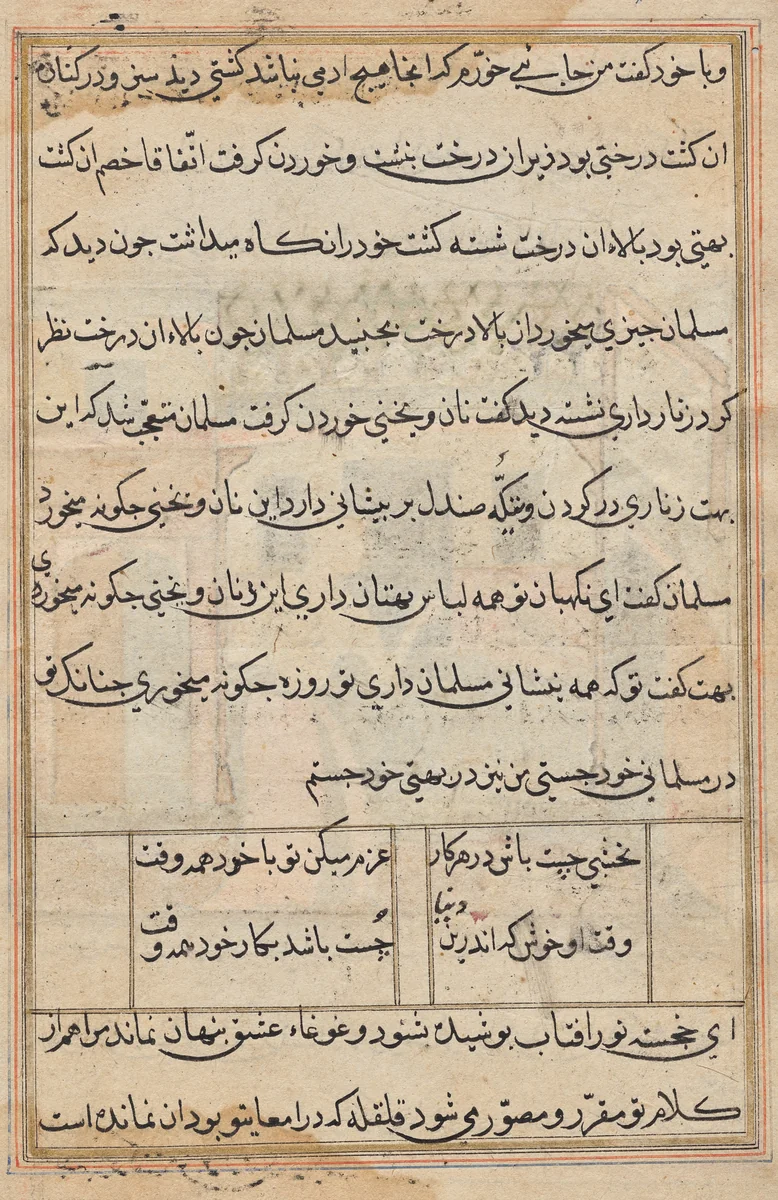 وبا خود کفت من جائی خورم که انجا هیچ ادمی نباشد کشتی دید سبز ودر کنان
ان کشت درختی بود زیر ان درخت بنشت وخوردن کرفت اتّفاقا خصم ان کشت
بهتی بود بالاء ان درخت شسته کشت خود را نکاه میداشت جون دید که
مسلمان جیزی میخورد از بالا درخت بجنبید مسلمان جون بالاء ان درخت نظر
کرد زنار داری نشته دید کفت نان ویخنی خوردن کرفت مسلمان متعجّب شد که این
بهت زناری در کردن وتیکّه صندل بر بیشانی دارد این نان ویخنی جکونه میخورد
مسلمان کفت ای نکهبان تو همه لباس بهتان داری این نان ویخنی جکونه میخوری
بهت کفت تو که همه بنشانی مسلمان داری تو روزه جکونه میخوری جنانک تو
در مسلمانی خود جستی من نیز در بهتی خود جستم
نخشبی چست باش در هر کار عزم میکن تو با خود همه وقت
وقت او خوش که اندرین دنیا چُست باشد بکار خود همه وقت
ای خجسته نور افتاب بوشیده نشود وغوغاء عشق بنهان نماند مرا هم از
کلام تو مقرّر ومصوّر می شود قلقله که در امعا یتو بود ان نمانده است